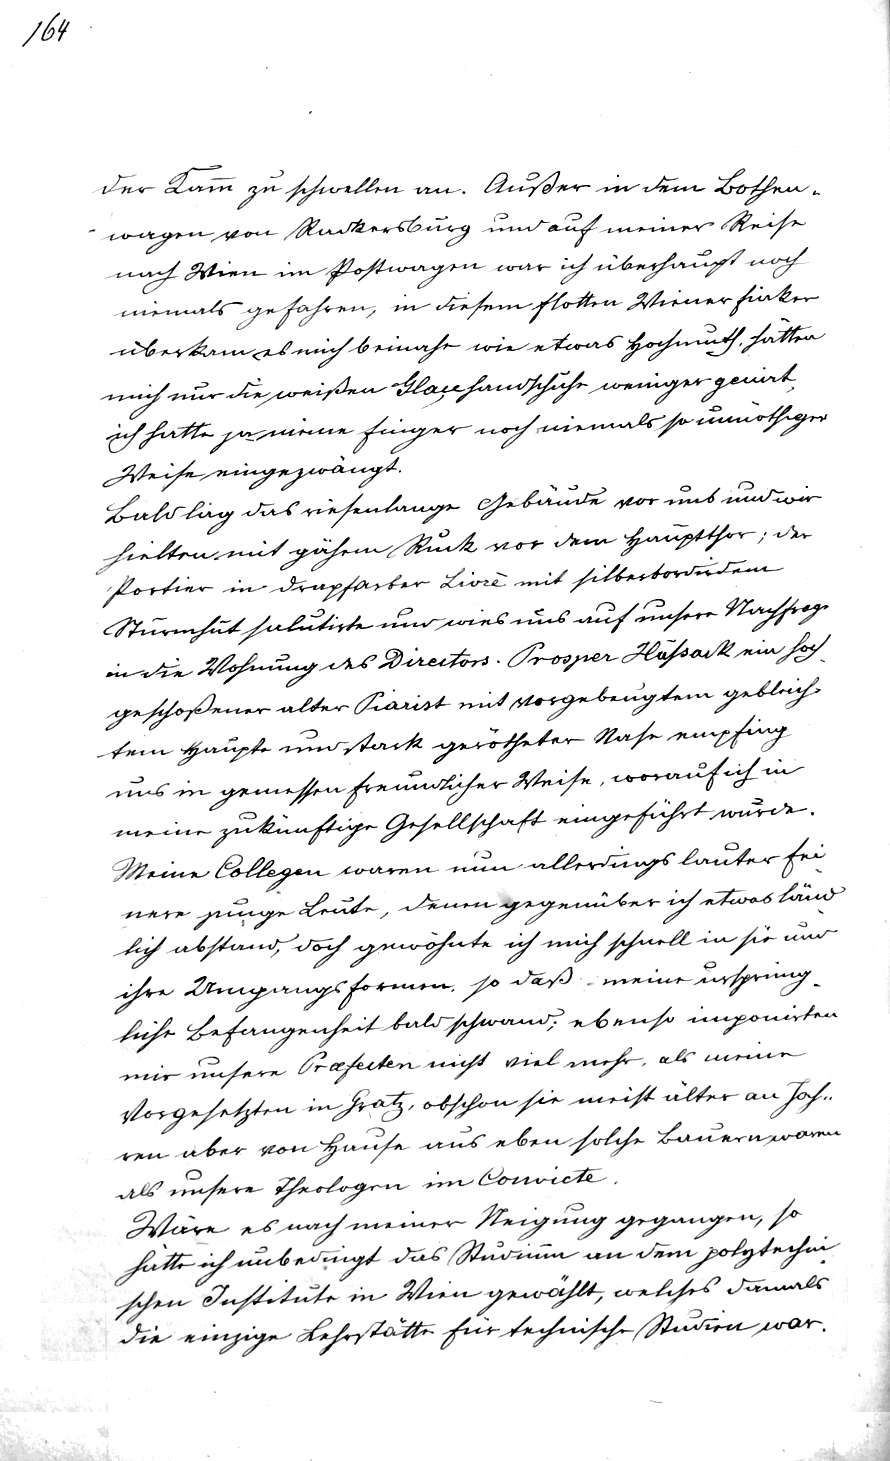 164
der Kam̅ zu schwellen an. Außer in dem Bothen-
wagen von Radkersburg und auf meiner Reise
nach Wien im Postwagen war ich überhaupt noch
niemals gefahren, in diesem flotten Wiener Fiaker
überkam es mich beinahe wie etwas Hochmuth, hätten
mich nur die weißen Glaçehandschuhe weniger genirt,
ich hatte ja meine Finger noch niemals so unnöthiger
Weise eingezwängt.
Bald lag das riesenlange Gebäude vor uns und wir
hielten mit gähem Ruck vor dem Hauptthor; der
Portier in drapfarber Livrè mit silberbordirdem
Sturmhut salutirte und wies uns auf unsere Nachfrage
in die Wohnung des Directors. Prosper ein hoch
geschoßener alter Piarist mit vorgebeugtem gebleich-
tem Haupte und stark gerötheter Nase empfing
uns in gemessen freundlicher Weise, worauf ich in
meine zukünftige Gesellschaft eingeführt wurde.
Meine Collegen waren nun allerdings lauter fei
nere junge Leute, denen gegenüber ich etwas länd
lich abstand, doch gewöhnte ich mich schnell in sie und
ihre Umgangsformen, so daß meine ursprüng-
liche Befangenheit bald schwand; ebenso imponirten
mir unsere Præfecten nicht viel mehr, als meine
Vorgesetzten in Gratz, obschon sie meist älter an Jah-
ren aber von Hause aus eben solche Bauern waren
als unsere Theologen im Convicte.
Wäre es nach meiner Neigung gegangen, so
hätte ich unbedingt das Studium an dem polytechni
schen Institute in Wien gewählt, welches damals
die einzige Lehrstätte für technische Studien war.